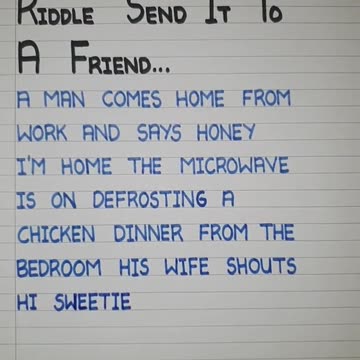 RIDDLE SEND IT TO
A FRIEND...
A MAN COMES HOME FROM
WORK AND SAYS HONEY
I'M HOME THE MICROWAVE
IS ON DEFROSTING A
CHICKEN DINNER FROM THE
BEDROOM HIS WIFE SHOUTS
HI SWEETIE